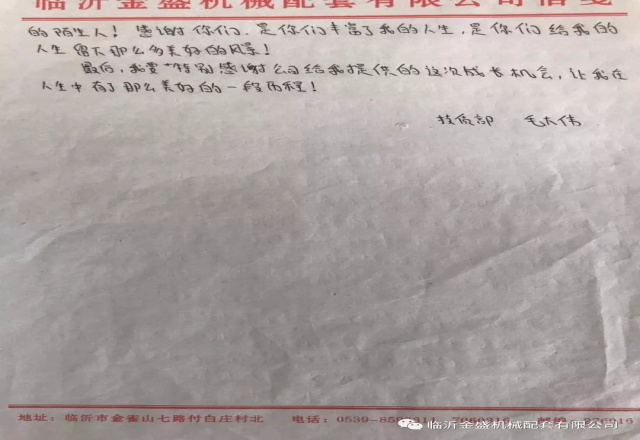 临沂金盛机械配套有限公司信笺
的陌生人！感谢你们，是你们丰富了我的人生，是你们给我的
人生留下那么多美好的风景！
最后，我要特别感谢公司给我提供的这次成长机会，让我在
人生中有了那么美好的一段历程！
技质部 毛大伟
地址：临沂市金雀山七路付白庄村北 电话：0539-
临沂金盛机械配套有限公司